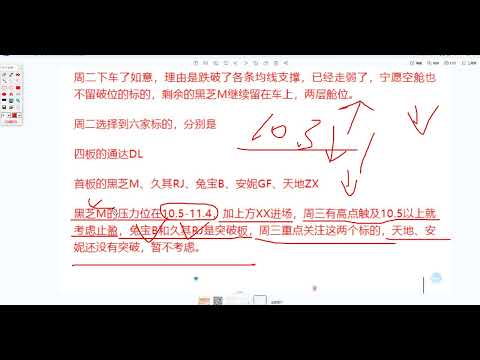 周二下车了如意，理由是跌破了各条均线支撑，已经走弱了，宁愿空舱也
不留破位的标的，剩余的黑芝M继续留在车上，两层舱位。
周二选择到六家标的，分别是
10.3
四板的通达DL
首板的黑芝M、久其RJ、兔宝B、安妮GF、天地ZX
黑芝M的压力位在10.5-11.4，加上方XX进场，周三有高点触及10.5以上就
考虑止盈，兔宝B和久其RJ是突破板，周三重点关注这两个标的，天地、安
妮还没有突破，暂不考虑。